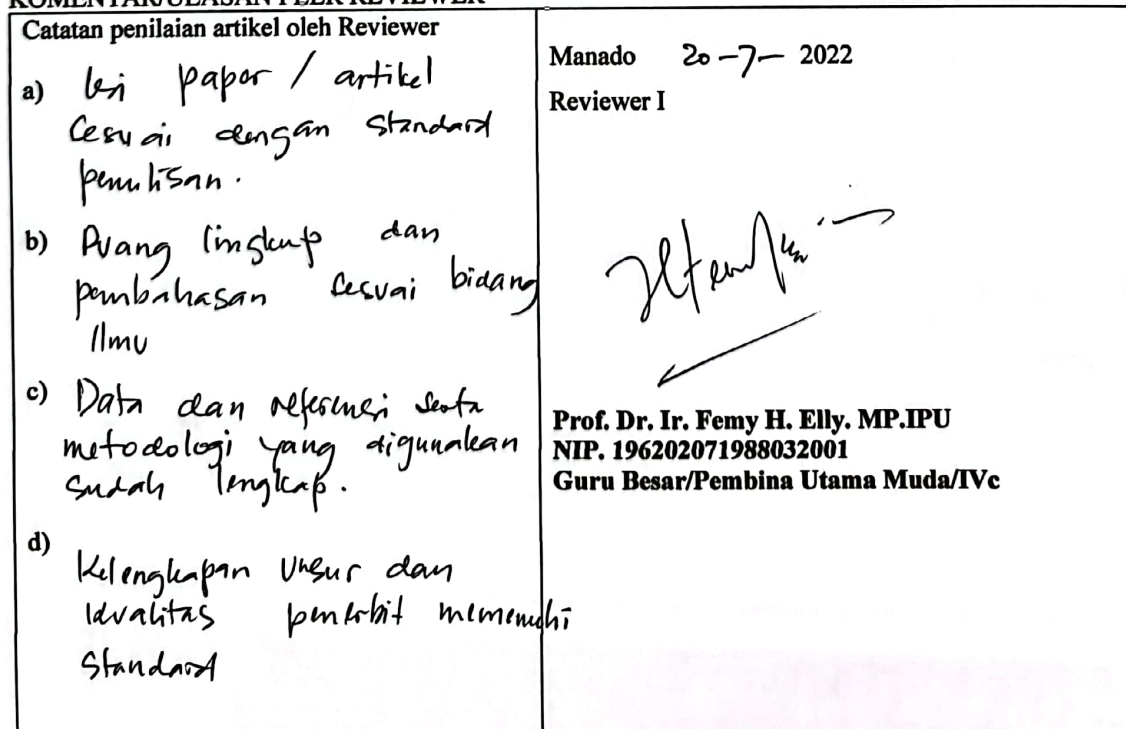 KOMENTAR/ULASAN PEER REVIEWER
Catatan penilaian artikel oleh Reviewer
a) Isi paper / artikel
sesuai dengan standard
penulisan.
b) Ruang lingkup dan
pembahasan sesuai bidang
Ilmu
c) Data dan referensi serta
metodologi yang digunakan
sudah lengkap.
d)
Kelengkapan unsur dan
kualitas penerbit memenuhi
standard
Manado 20-7- 2022
Reviewer I
Prof. Dr. Ir. Femy H. Elly. MP.IPU
NIP. 196202071988032001
Guru Besar/Pembina Utama Muda/IVc